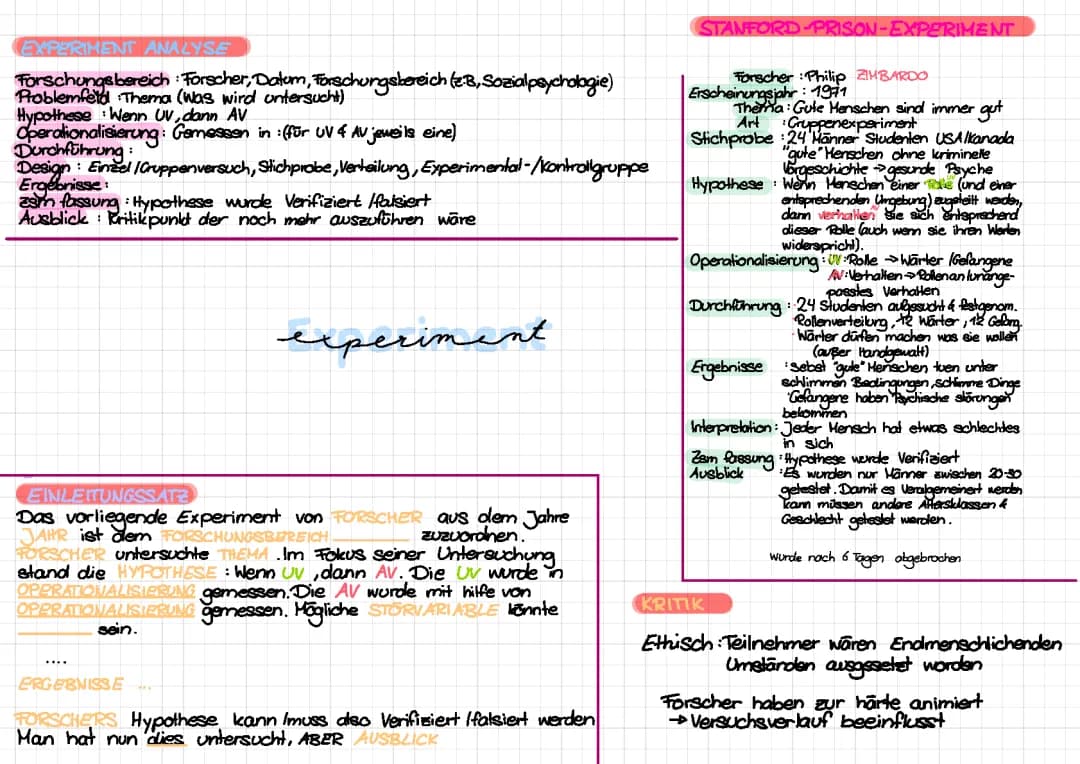 EXPERIMENT ANALYSE
Forschungsbereich : Forscher, Datum, Forschungsbereich (z.B, Sozialpsychologie)
Problemfeld : Thema (Was wird untersucht)
Hypothese : Wenn UV, dann AV
Operationalisierung : Gemessen in : (für UV & AV jeweils eine)
Durchführung :
Design : Einzel /Gruppenversuch, Stichprobe, Verteilung, Experimental-/Kontrollgruppe
Ergebnisse :
zsm fassung : Hypothese wurde Verifiziert /falsiert
Ausblick : Kritikpunkt der noch mehr auszuführen wäre
STANFORD-PRISON-EXPERIMENT
Forscher : Philip ZIMBARDO
Erscheinungsjahr : 1971
Thema : Gute Menschen sind immer gut
Art : Gruppenexperiment
Stichprobe : 24 Männer Studenten USA/Kanada
"gute" Menschen ohne kriminelle
Vorgeschichte → gesunde Psyche
Hypothese : Wenn Menschen einer Rolle (und einer
entsprechenden Umgebung) zugeteilt werden,
dann verhalten sie sich entsprechend
dieser Rolle (auch wenn sie ihren Werten
widerspricht).
Operationalisierung : UV: Rolle → Wärter /Gefangene
AV: Verhalten → Rollenan/unange-
passtes Verhalten
Durchführung : 24 Studenten aufgesucht & festgenom.
Rollenverteilung, 12 Wärter, 12 Gefang.
Wärter düfen machen was sie wollen
(außer Handgewalt)
Ergebnisse : Selbst "gute" Menschen tuen unter
schlimmen Bedingungen, schlimme Dinge
Gefangene haben Psychische störungen
bekommen
Interpretation : Jeder Mensch hat etwas schlechtes
in sich
Zsm fassung : Hypothese wurde Verifiziert
Ausblick : Es wurden nur Männer zwischen 20-30
getestet. Damit es Veralgemeinert werden
kann müssen andere Altersklassen &
Geschlecht getestet werden.
wurde nach 6 Tagen abgebrochen
Experiment
experiment
EINLEITUNGSSATZ
Das vorliegende Experiment von FORSCHER aus dem Jahre
JAHR ist dem FORSCHUNGSBEREICH ________ zuzuordnen.
FORSCHER untersuchte THEMA. Im Fokus seiner Untersuchung
stand die HYPOTHESE : Wenn UV, dann AV. Die UV wurde in
OPERATIONALISIERUNG gemessen. Die AV wurde mit hilfe von
OPERATIONALISIERUNG gemessen. Mögliche STÖRVARIABLE könnte
________ sein.
....
ERGEBNISSE ...
FORSCHERS Hypothese kann /muss also Verifiziert /falsiert werden
Man hat nun dies untersucht, ABER AUSBLICK
KRITIK
Ethisch : Teilnehmer wären Endmenschlichenden
Umständen ausgesetzt worden
Forscher haben zur härte animiert
→ Versuchsverlauf beeinflusst